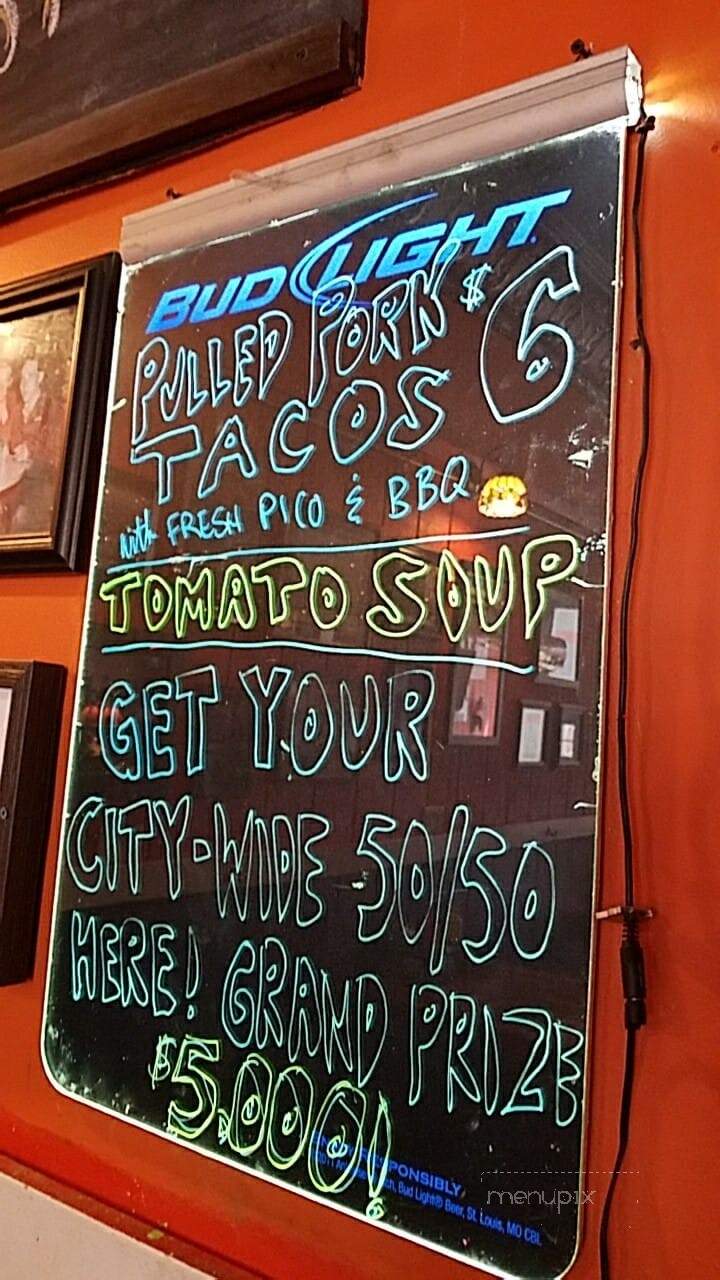 BUD LIGHT
PULLED PORK $6
TACOS
with FRESH PICO & BBQ
TOMATO SOUP
GET YOUR
CITY-WIDE 50/50
HERE! GRAND PRIZE
$5,000!
RESPONSIBLY
Bud Light® Beer, St. Louis, MO CBL
menupix